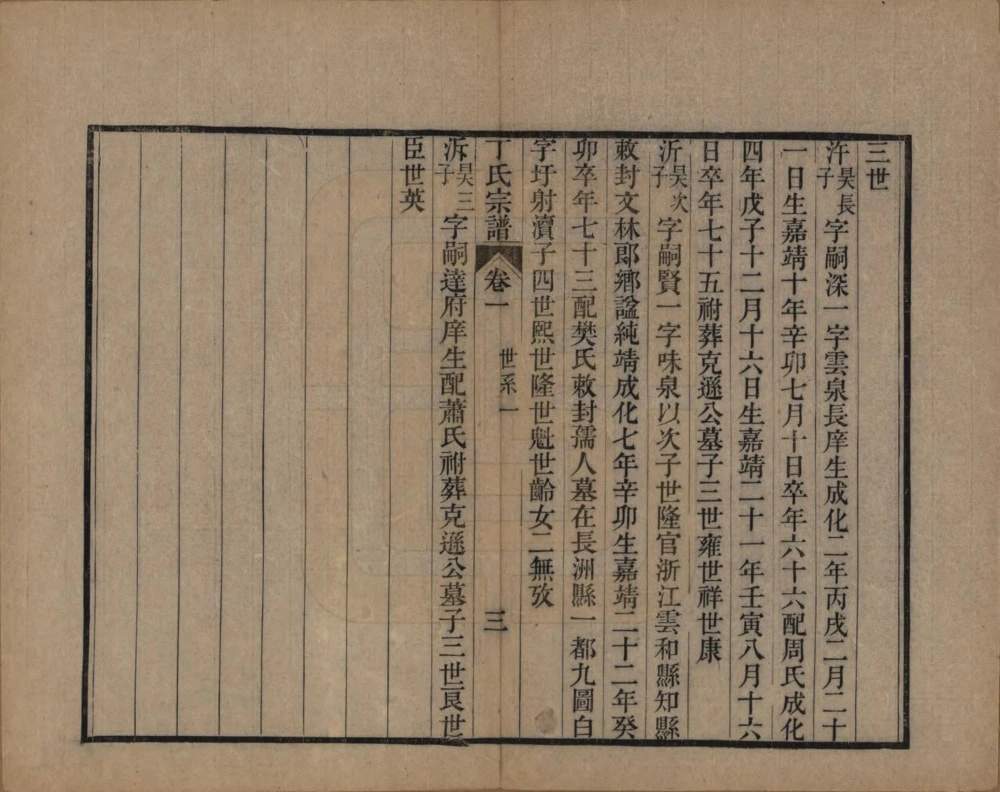 三世
汻昊長子字嗣深一字雲泉長庠生成化二年丙戌二月二十
一日生嘉靖十年辛卯七月十日卒年六十六配周氏成化
四年戊子十二月十六日生嘉靖二十一年壬寅八月十六
日卒年七十五祔葬克遜公墓子三世雍世祥世康
沂昊次子字嗣賢一字味泉以次子世隆官浙江雲和縣知縣
敕封文林郎鄉諡純靖成化七年辛卯生嘉靖二十二年癸
卯卒年七十三配樊氏敕封孺人墓在長洲縣一都九圖白
字圩射瀆子四世熙世隆世魁世齡女二無攷
丁氏宗譜 卷一 世系一 三
泝昊三子字嗣達府庠生配蕭氏祔葬克遜公墓子三世艮世
臣世英